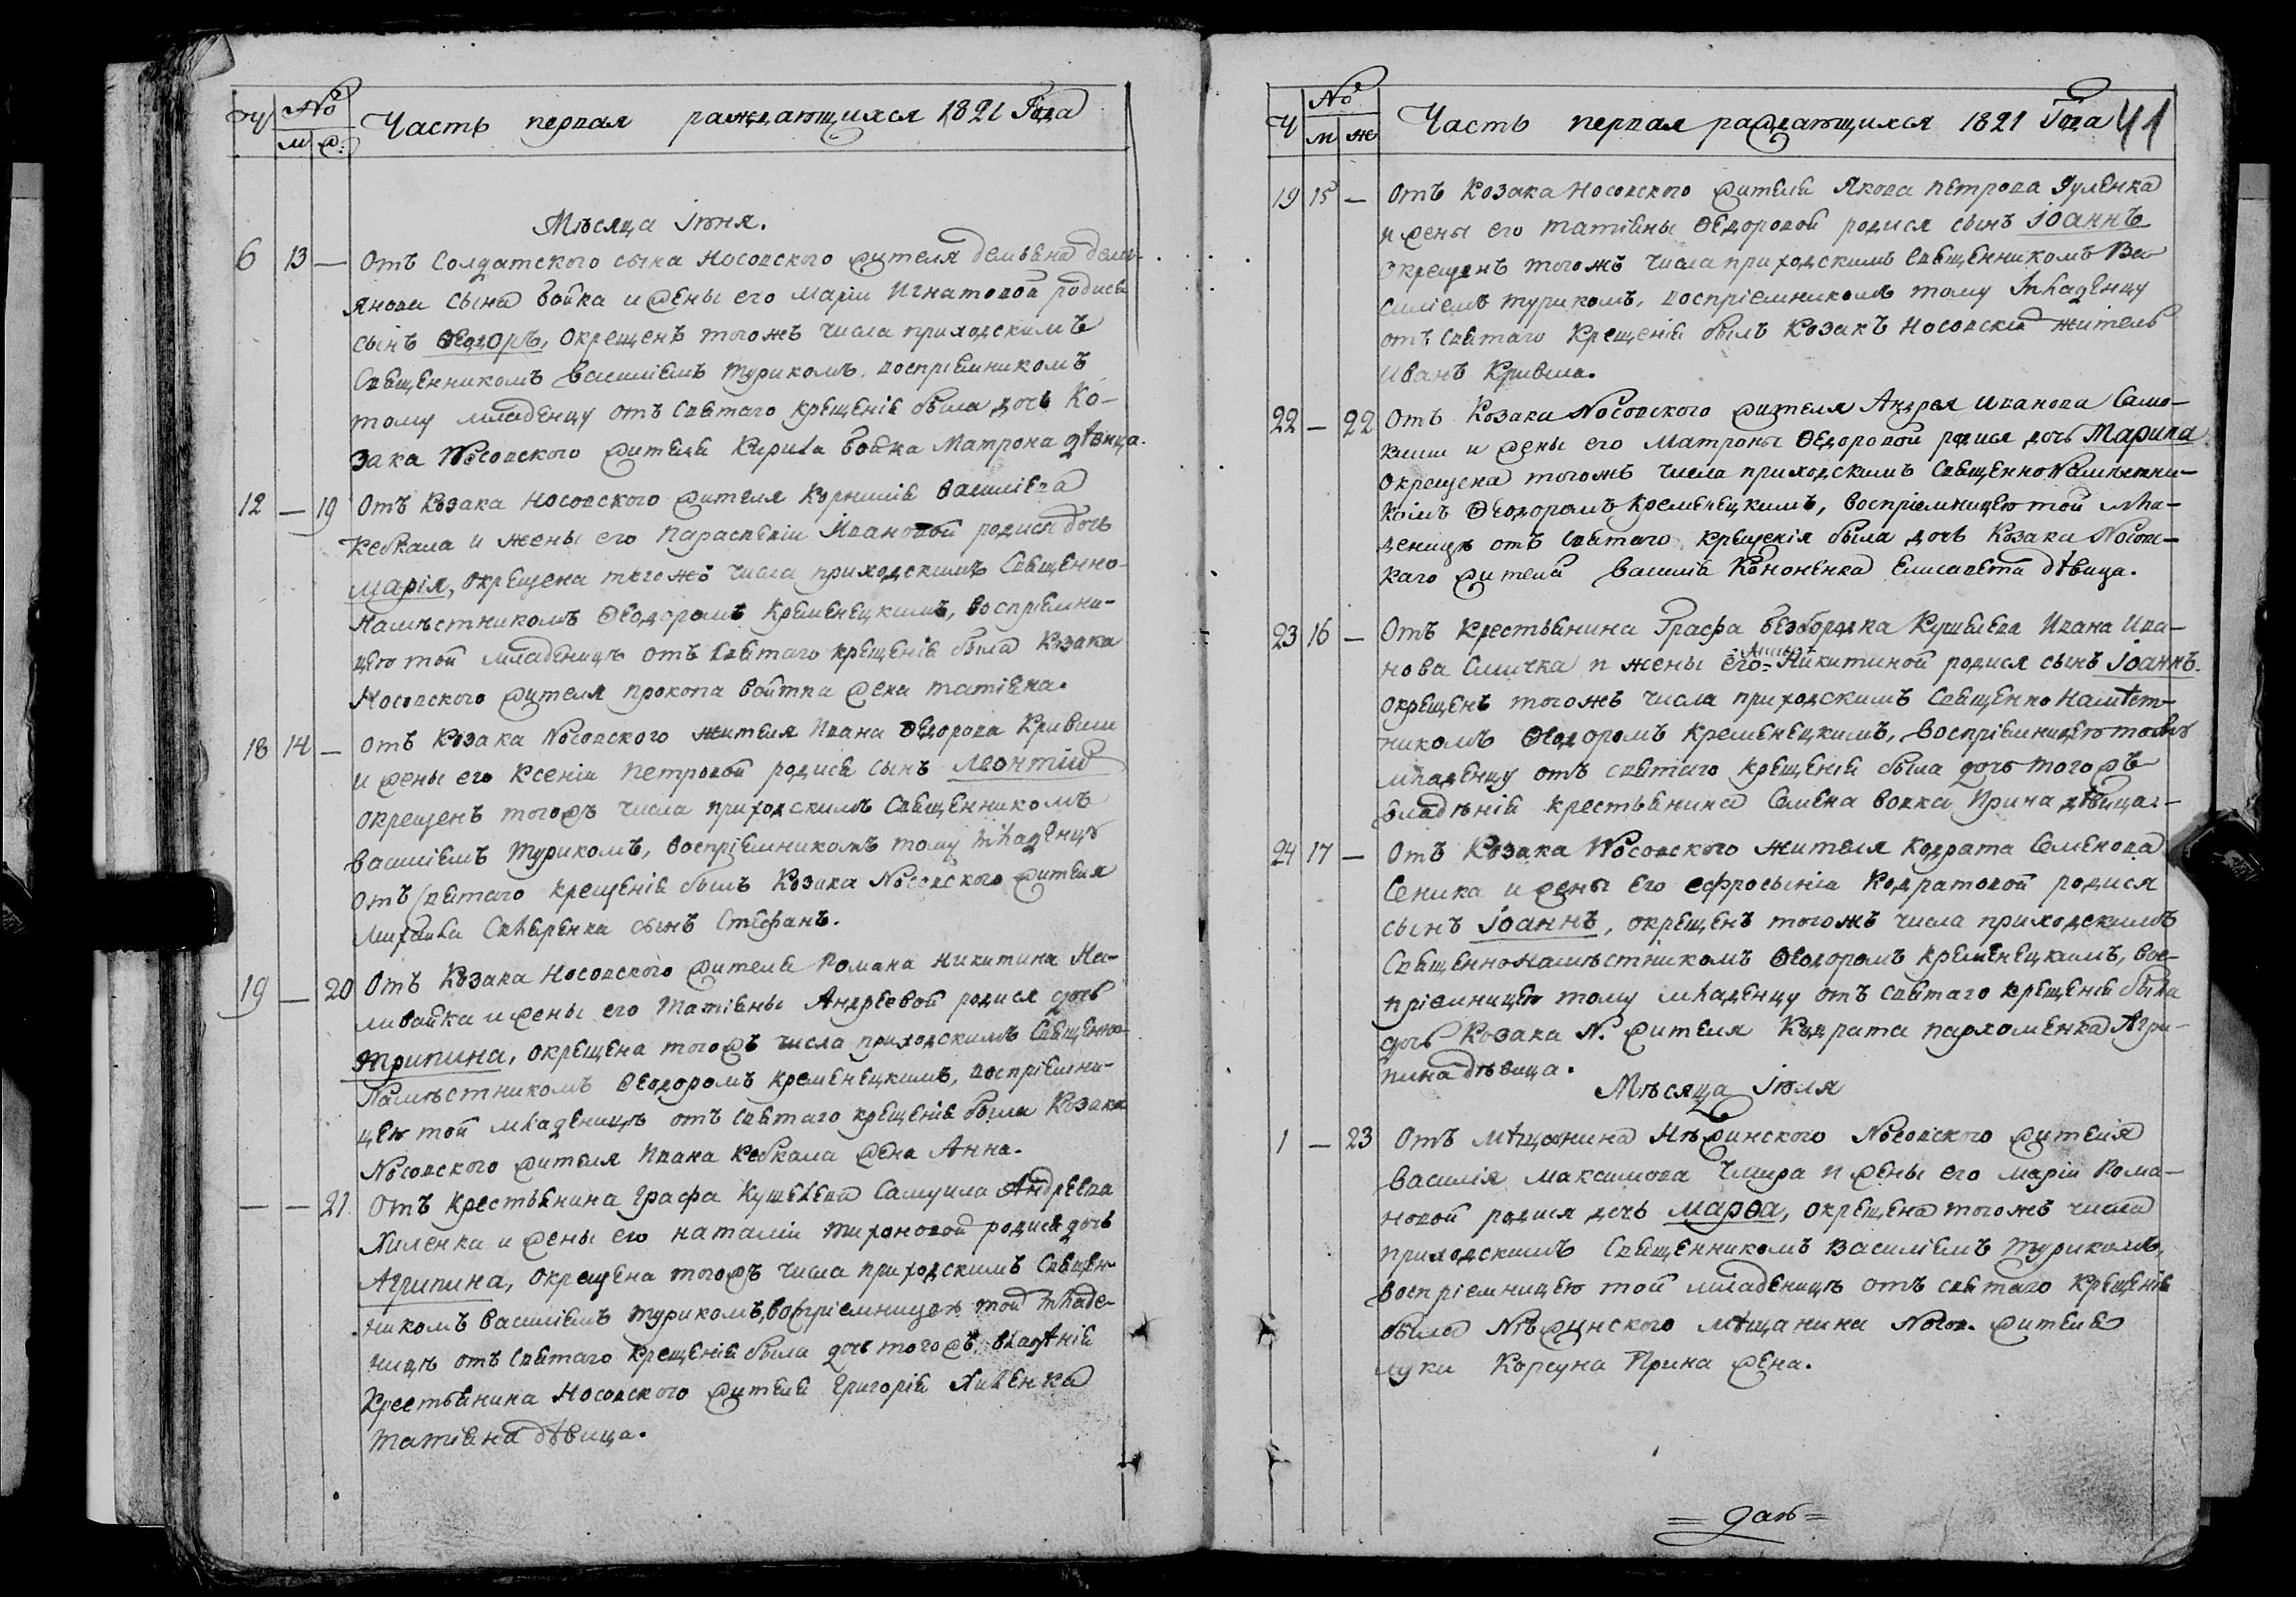 Чу № Часть первая раждающихся 1821 Года
м ж:
Мѣсяца Іюня.
6 13 — Отъ Солдатского сына Носовского жителя Демьяна Деми-
янова сына Бойка и жены его Маріи Игнатовой родися
сынъ Ѳеодоръ, окрещенъ тогожъ числа приходскимъ
Священникомъ Василіемъ Турикомъ. воспріемникомъ
тому младенцу отъ Святаго крещенія была дочь Ко-
зака Носовского жителя Кирила Бойка Матрона дѣвица.
12 — 19 Отъ Козака Носовского жителя Корнилія Василіева
Кебкала и жены его Параскевіи Ивановой родися дочь
Марія, окрещена тогожъ числа приходскимъ Священно-
Намѣстникомъ Ѳеодоромъ Кременецкимъ, воспріемни-
цею той младеницѣ отъ Святаго крещенія была Козака
Носовского жителя Прокопа Войтпа жена Татіана.
18 14 — Отъ Козака Носовского жителя Ивана Ѳедорова Кривши
и жены его Ксеніи Петровой родися сынъ Леонтій
окрещенъ тогожъ числа приходскимъ Священникомъ
Василіемъ Турикомъ, воспріемникомъ тому младенцу
отъ Святаго крещенія былъ Козака Носовского жителя
Михаила сынъ Стефанъ.
19 — 20 Отъ Козака Носовского жителя Романа Никитина На-
ливайка и жены его Татіаны Андреевой родися дочь
Агрипина, окрещена тогожъ числа приходскимъ Священно-
Намѣстникомъ Ѳеодоромъ Кременецкимъ, воспріемни-
цею той младеницѣ отъ Святаго крещенія была Козака
Носовского жителя Ивана Кебкала жена Анна.
— — 21. Отъ Крестьянина Графа Кушелева Самуила Андреева
Хиленка и жены его Наталіи Тихоновой родися дочь
Агрипина, окрещена тогожъ числа приходскимъ Священ-
никомъ Василіемъ Турикомъ, воспріемницею той младе-
ницѣ отъ Святаго Крещенія была дочь тогожъ владѣнія
Крестьянина Носовского жителя Григорія Хиленка
Татіана дѣвица.
Ч № Часть первая раждающихся 1821 Года 41
м ж
19 15 — Отъ Козака Носовского жителя Якова Петрова Яуленка
и жены его Татіаны Ѳедоровой родися сынъ Іоаннъ
окрещенъ тогожъ числа приходскимъ Священникомъ Ва-
силіемъ Турикомъ, воспріемникомъ тому младенцу
отъ Святаго Крещенія былъ Козакъ Носовскій житель
Иванъ Кривша.
22 — 22 Отъ Козака Носовского жителя Андрея Иванова Само-
киши и жены его Матроны Ѳедоровой родися дочь Марина
окрещена тогожъ числа приходскимъ Священно Намѣстни-
комъ Ѳеодоромъ Кременецкимъ, воспріемницею той мла-
деницѣ отъ Святаго крещенія была дочь Козака Носов-
каго жителя Василія Кононенка Елисавета дѣвица.
23 16 — Отъ Крестьянина Графа Безбородка Кушелева Ивана Ива-
нова Смичка и жены его Анны Никитиной родися сынъ Іоаннъ.
окрещенъ тогожъ числа приходскимъ Священно Намѣст-
никомъ Ѳеодоромъ Кременецкимъ, воспріемницею тому
младенцу отъ Святаго крещенія была дочь тогожъ
владѣнія крестьянина Семена Вовка Ирина дѣвица.—
24 17 — Отъ Козака Носовского жителя Кодрата Семенова
Сеника и жены его Ефросыніи Кодратовой родися
сынъ Іоаннъ, окрещенъ тогожъ числа приходскимъ
Священнонамѣстникомъ Ѳеодоромъ Кременецкимъ, вос-
пріемницею тому младенцу отъ Святаго крещенія была
дочь Козака N. жителя Кодрата Пархоменка Агри-
пина дѣвица.
Мѣсяца Іюля
1 — 23 Отъ Мѣщанина Нѣжинского Носовского жителя
Василія Максимова Чмира и жены его Маріи Рома-
новой родися дочь Марѳа, окрещена тогожъ числа
приходскимъ Священникомъ Василіемъ Турикомъ,
воспріемницею той младеницѣ отъ святаго Крещенія
была Нѣжинского Мѣщанина Носов. жителя
Луки Корсуна Ирина жена.
= даѣ =